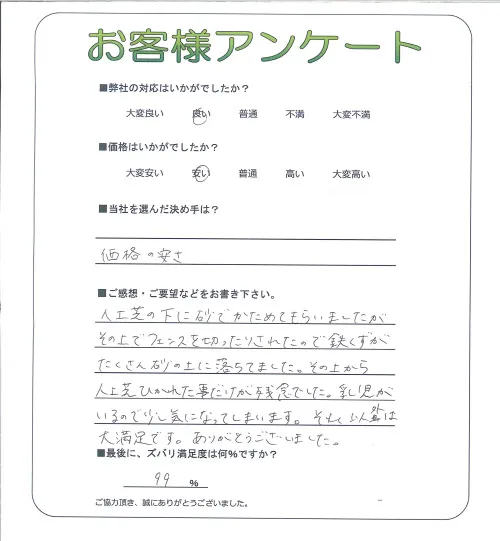 お客様アンケート
■弊社の対応はいかがでしたか？
大変良い 良い 普通 不満 大変不満
■価格はいかがでしたか？
大変安い 安い 普通 高い 大変高い
■当社を選んだ決め手は？
価格の安さ
■ご感想・ご要望などをお書き下さい。
人工芝の下に砂でかためてもらいましたが
その上でフェンスを切ったりされたので鉄くずが
たくさん砂の上に落ちてました。その上から
人工芝ひかれた事だけが残念でした。乳児が
いるので少し気になってしまいます。それ以外は
大満足です。ありがとうございました。
■最後に、ズバリ満足度は何%ですか？
99 %
ご協力頂き、誠にありがとうございました。